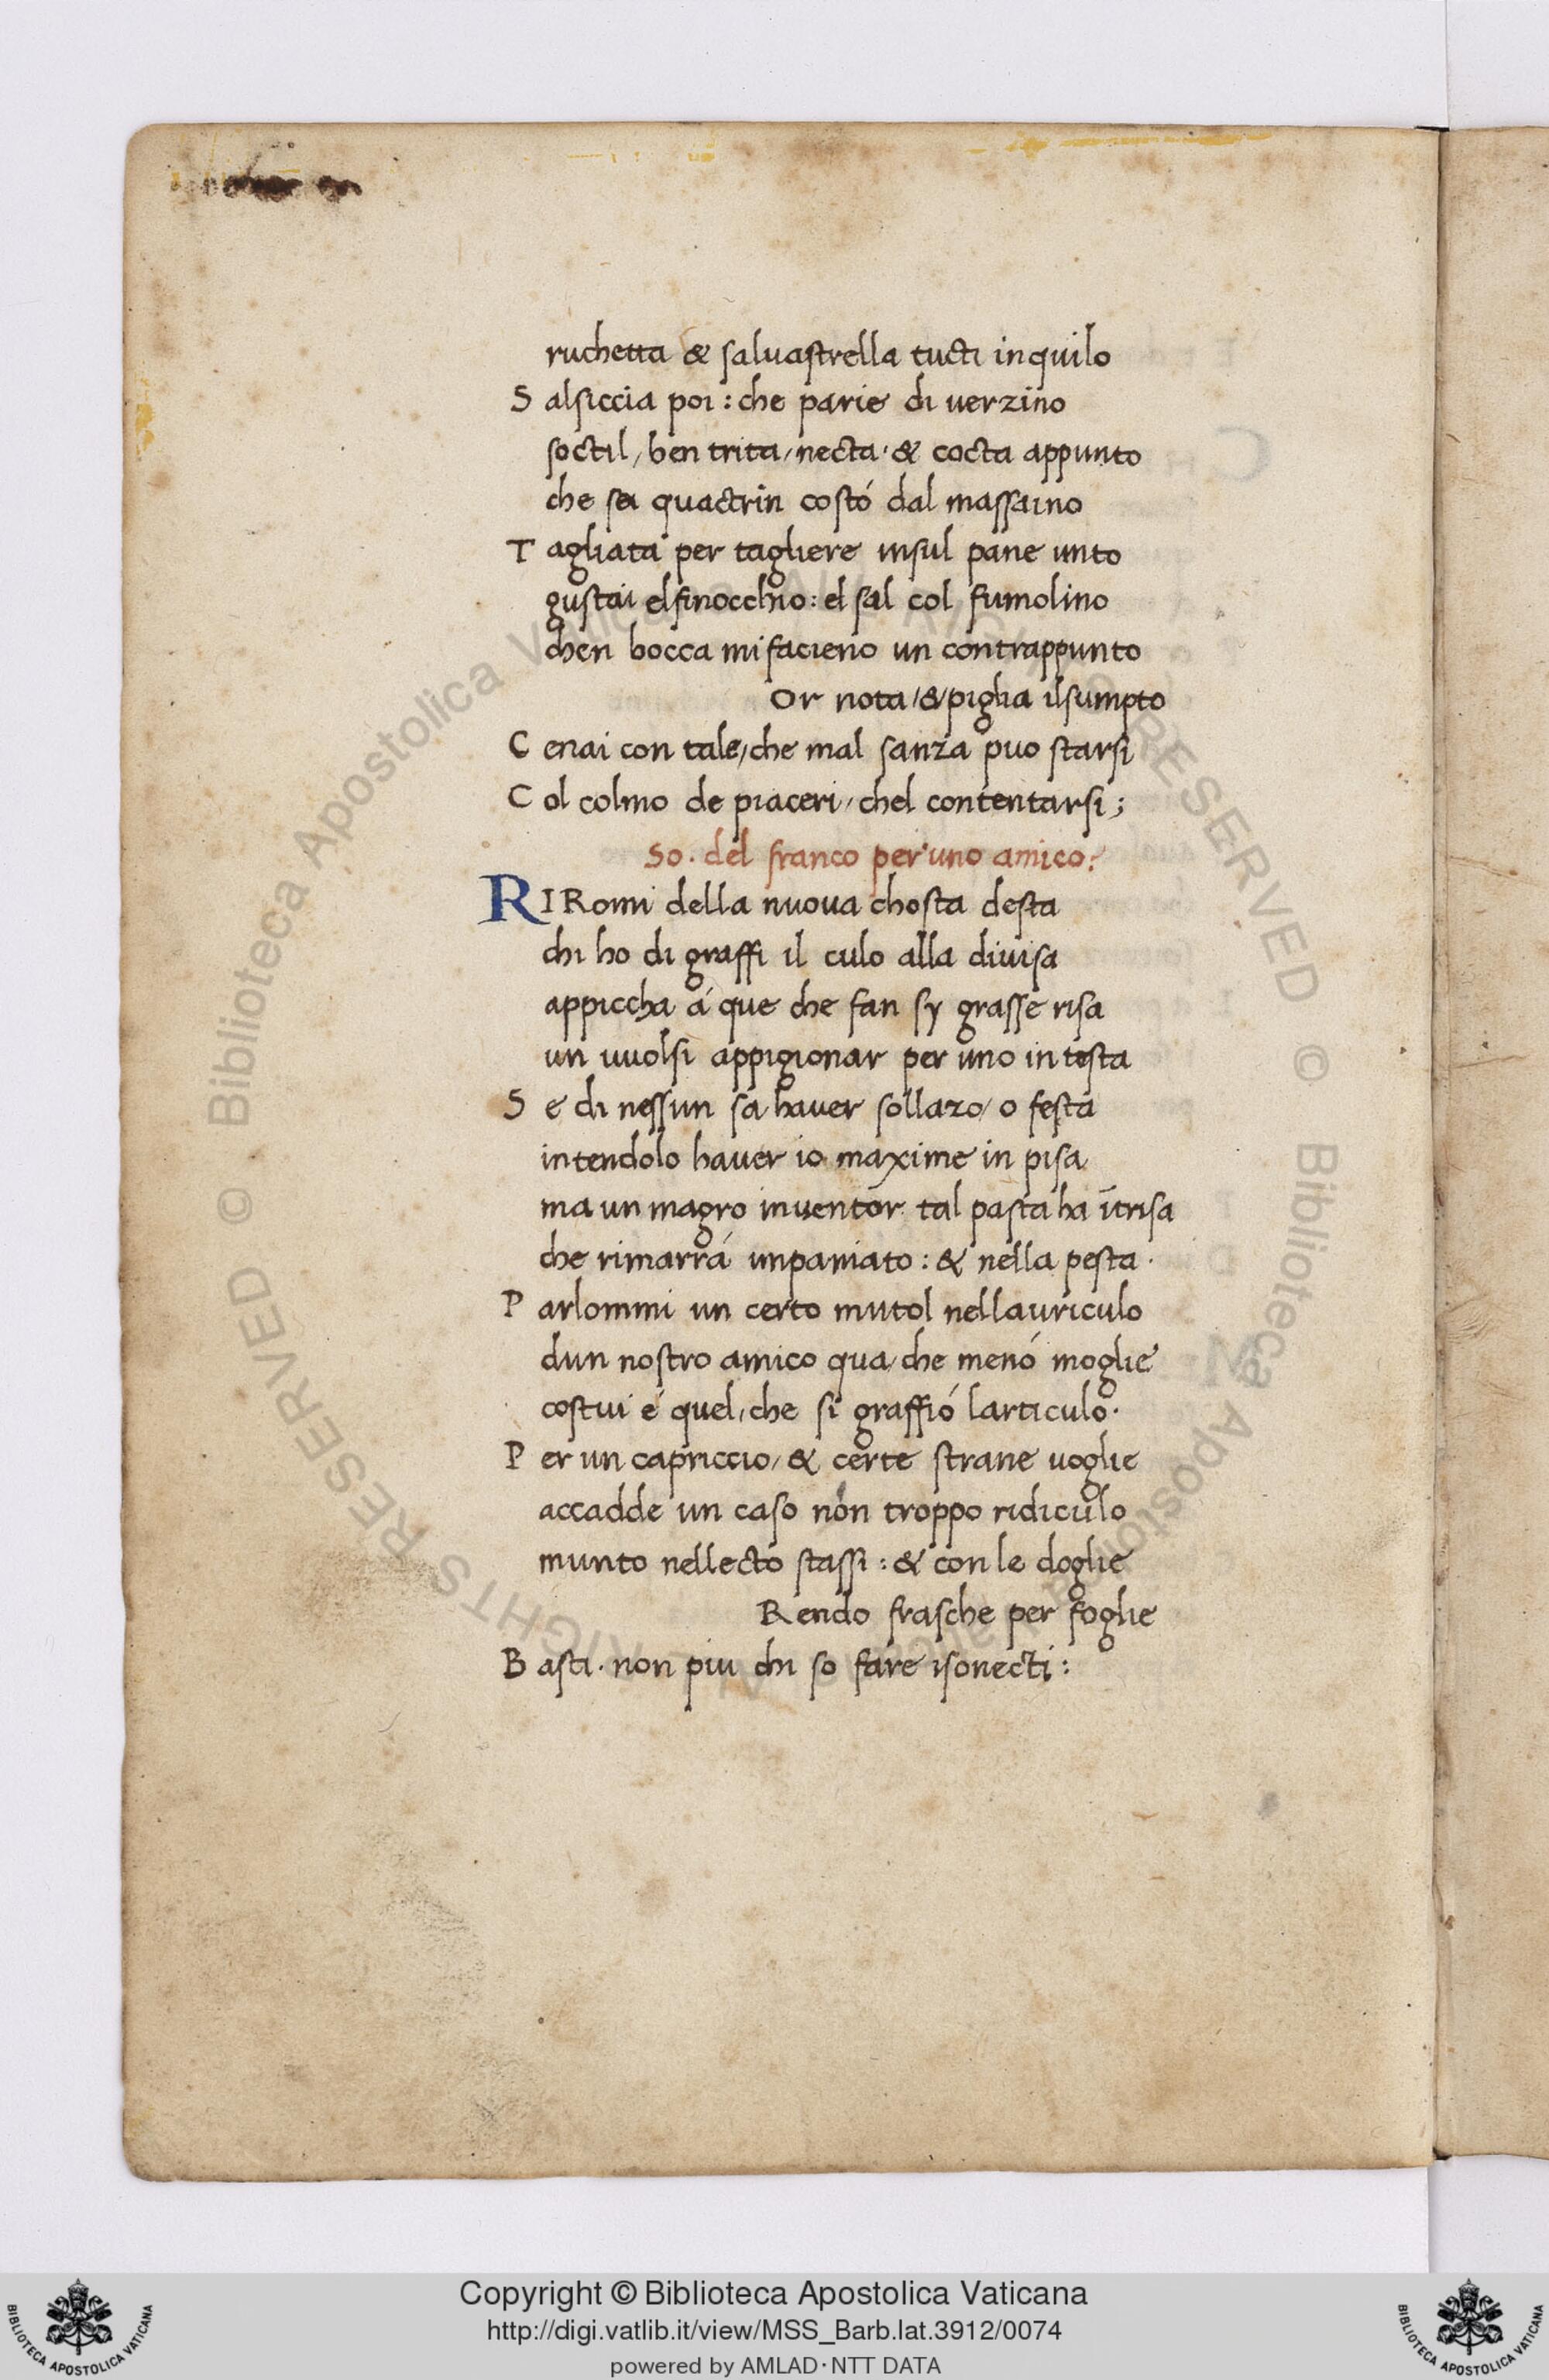 ruchetta & saluastrella tucti inquilo
S alsiccia poi : che parie di uerzino
soctil, ben trita, necta, & cocta appunto
che sei quactrin costó dal massaino
T agliata per tagliere insul pane unto
gustai elfinocchio: el sal col fumolino
chen bocca mi facieno un contrappunto
Or nota, & piglia il sumpto
C enai con tale, che mal sanza puo starsi
C ol colmo de piaceri, chel contentarsi ;
So. del franco per uno amico:
RIRomi della nuoua chosta desta
chi ho di graffi il culo alla diuisa
appiccha á que che fan sy grasse risa
un uuolsi appigionar per uno in testa
S e di nessun sa hauer sollazo, o festa
intendolo hauer io maxime in pisa
ma un magro inuentor tal pasta ha ītrisa
che rimarrá impaniato : & nella pesta .
P arlommi un certo mutol nellauriculo
dun nostro amico qua, che menó moglie
costui é quel, che si graffió larticulo.
P er un capriccio, & certe strane uoglie
accadde un caso nón troppo ridiculo
munto nellecto stassi : & con le doglie
Rendo frasche per foglie
B asti. non piu chi so fare isonecti :
Copyright © Biblioteca Apostolica Vaticana
http://digi.vatlib.it/view/MSS_Barb.lat.3912/0074
powered by AMLAD·NTT DATA
BIBLIOTECA APOSTOLICA VATICANA
BIBLIOTECA APOSTOLICA VATICANA
© Biblioteca Apostolica Vaticana ALL RIGHTS RESERVED
© Biblioteca Apostolica Vaticana ALL RIGHTS RESERVED